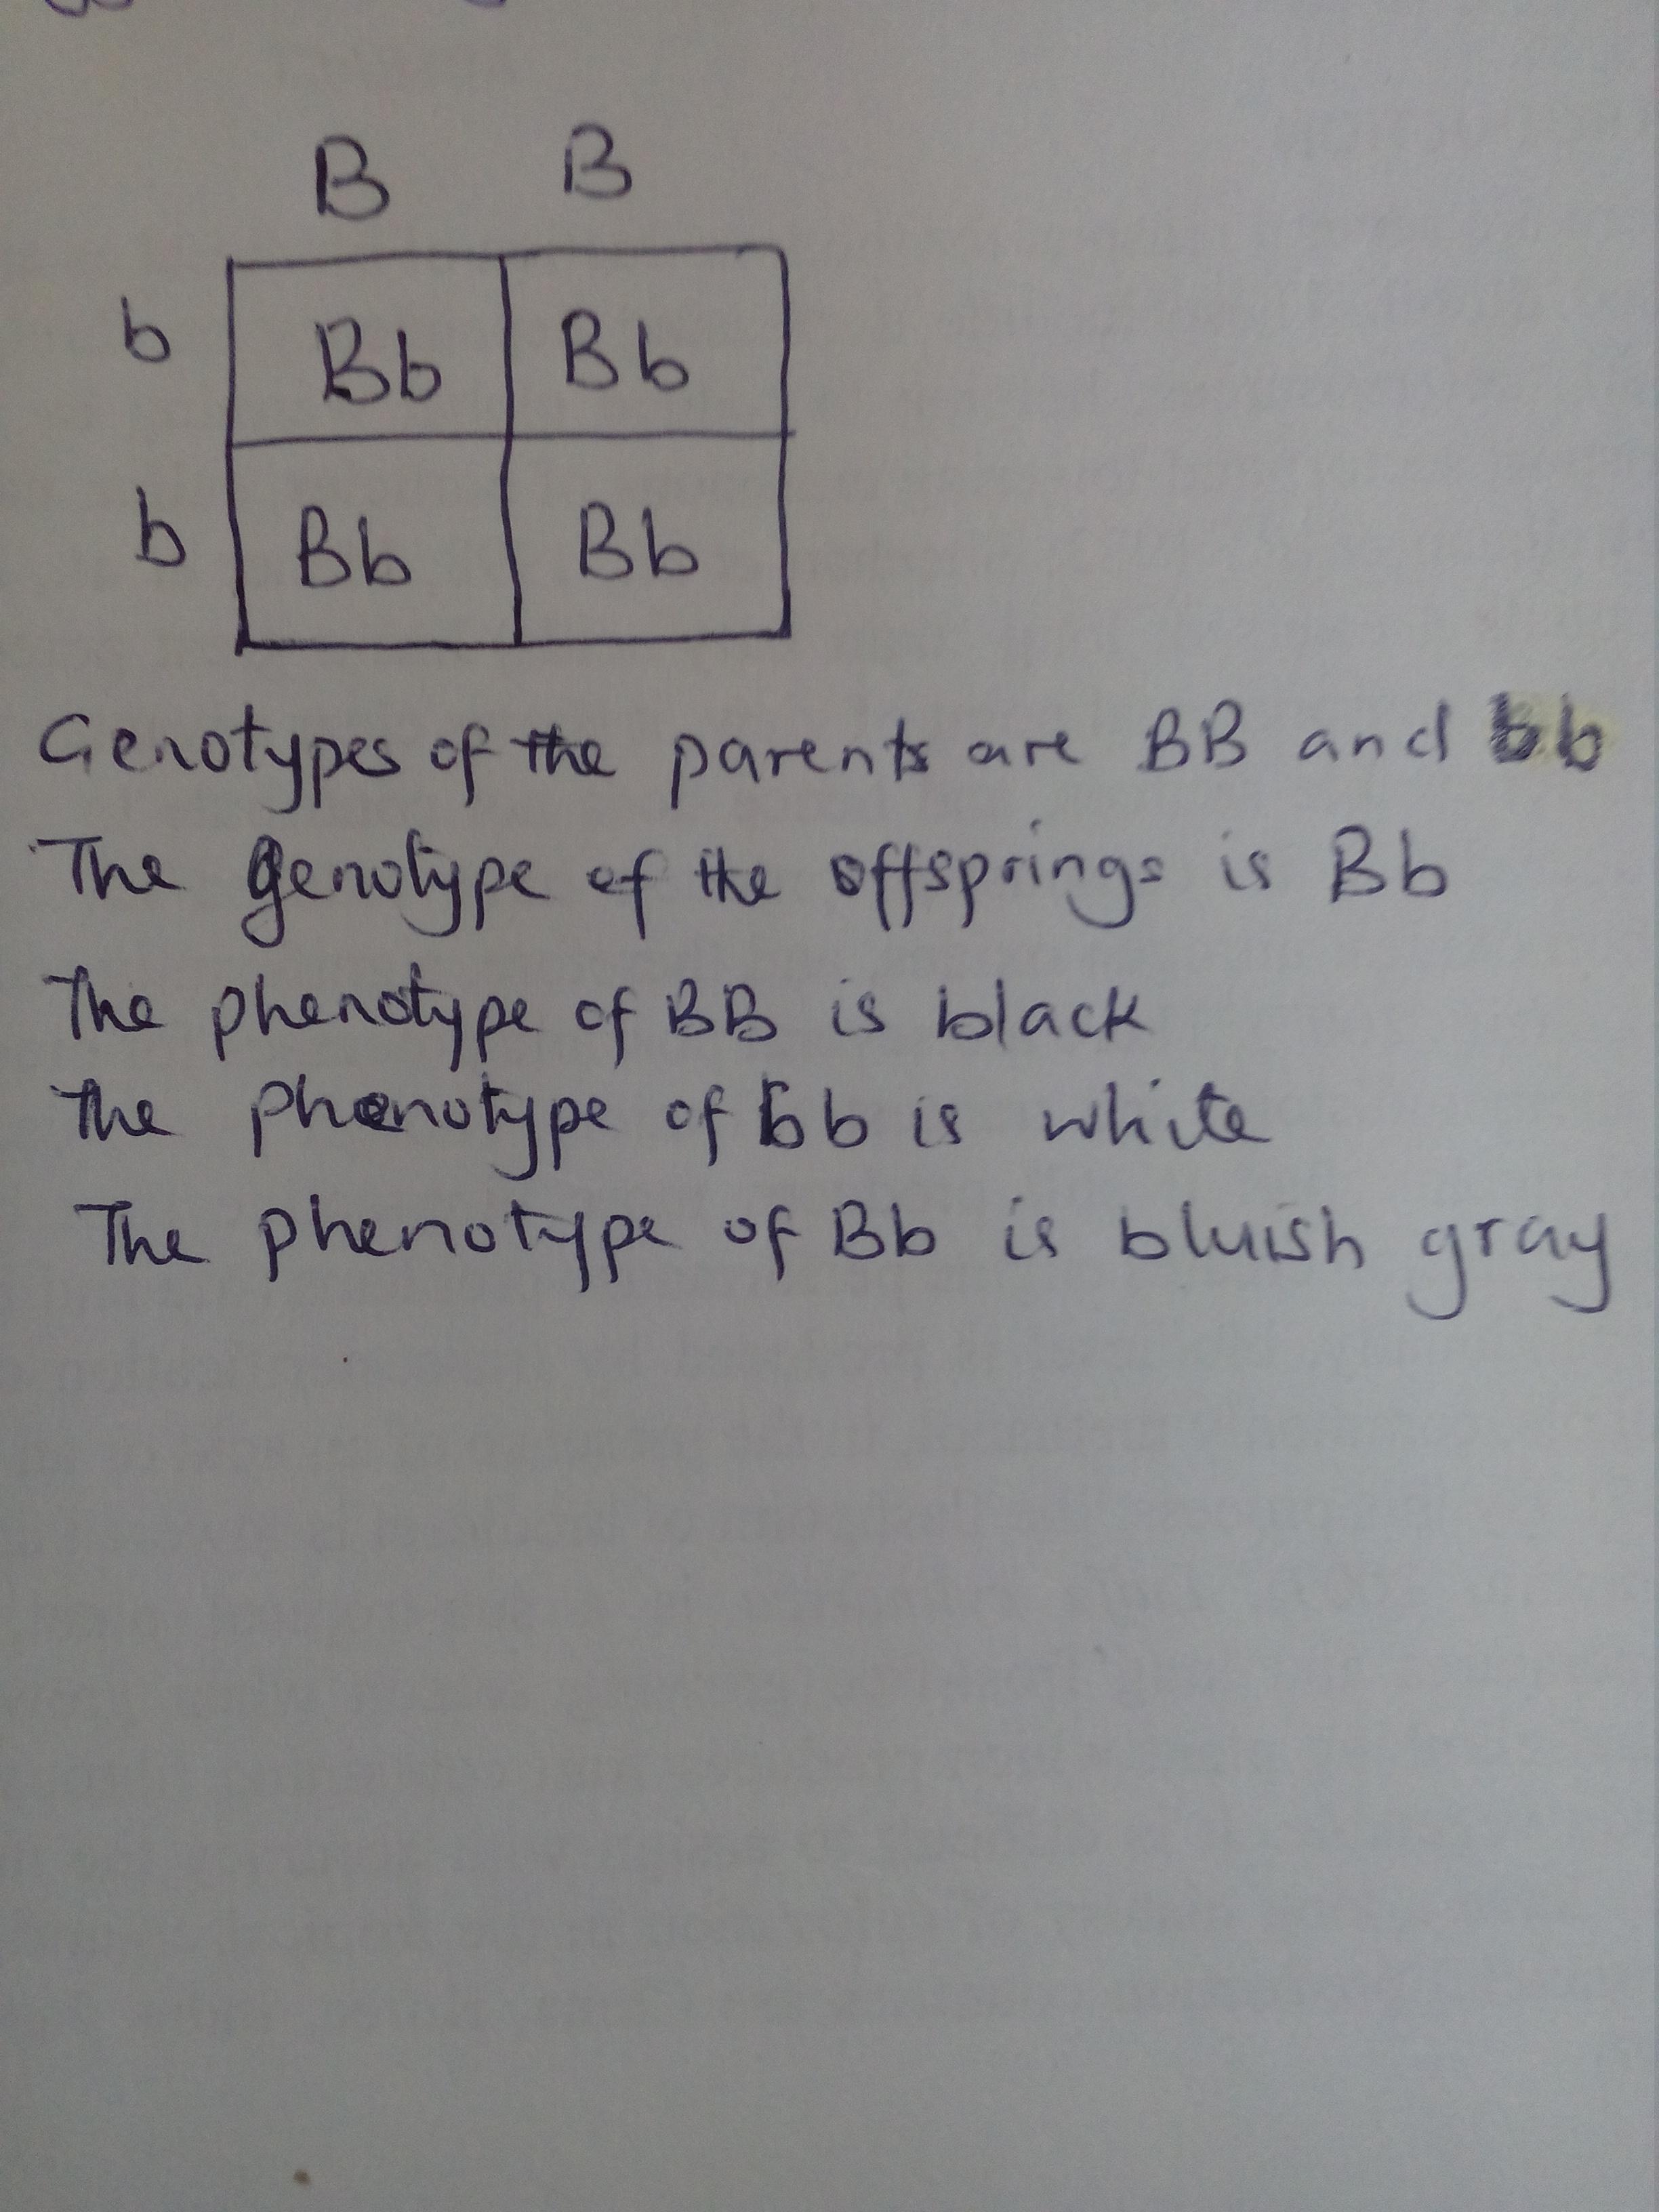 B B
b Bb Bb
b Bb Bb
Genotypes of the parents are BB and bb
The genotype of the offsprings is Bb
The phenotype of BB is black
The phenotype of bb is white
The phenotype of Bb is bluish gray